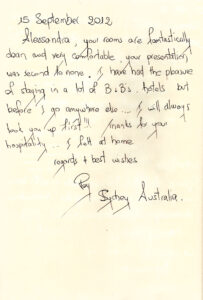 15 September 2012
Alessandra, your rooms are fantastically
clean and very comfortable, your presentation
was second to none. I have had the pleasure
of staying in a lot of B&B's, hotels but
before I go anywhere else... I will always
look you up first!!! Thanks for your
hospitality... I felt at home
regards + best wishes
Sydney Australia.